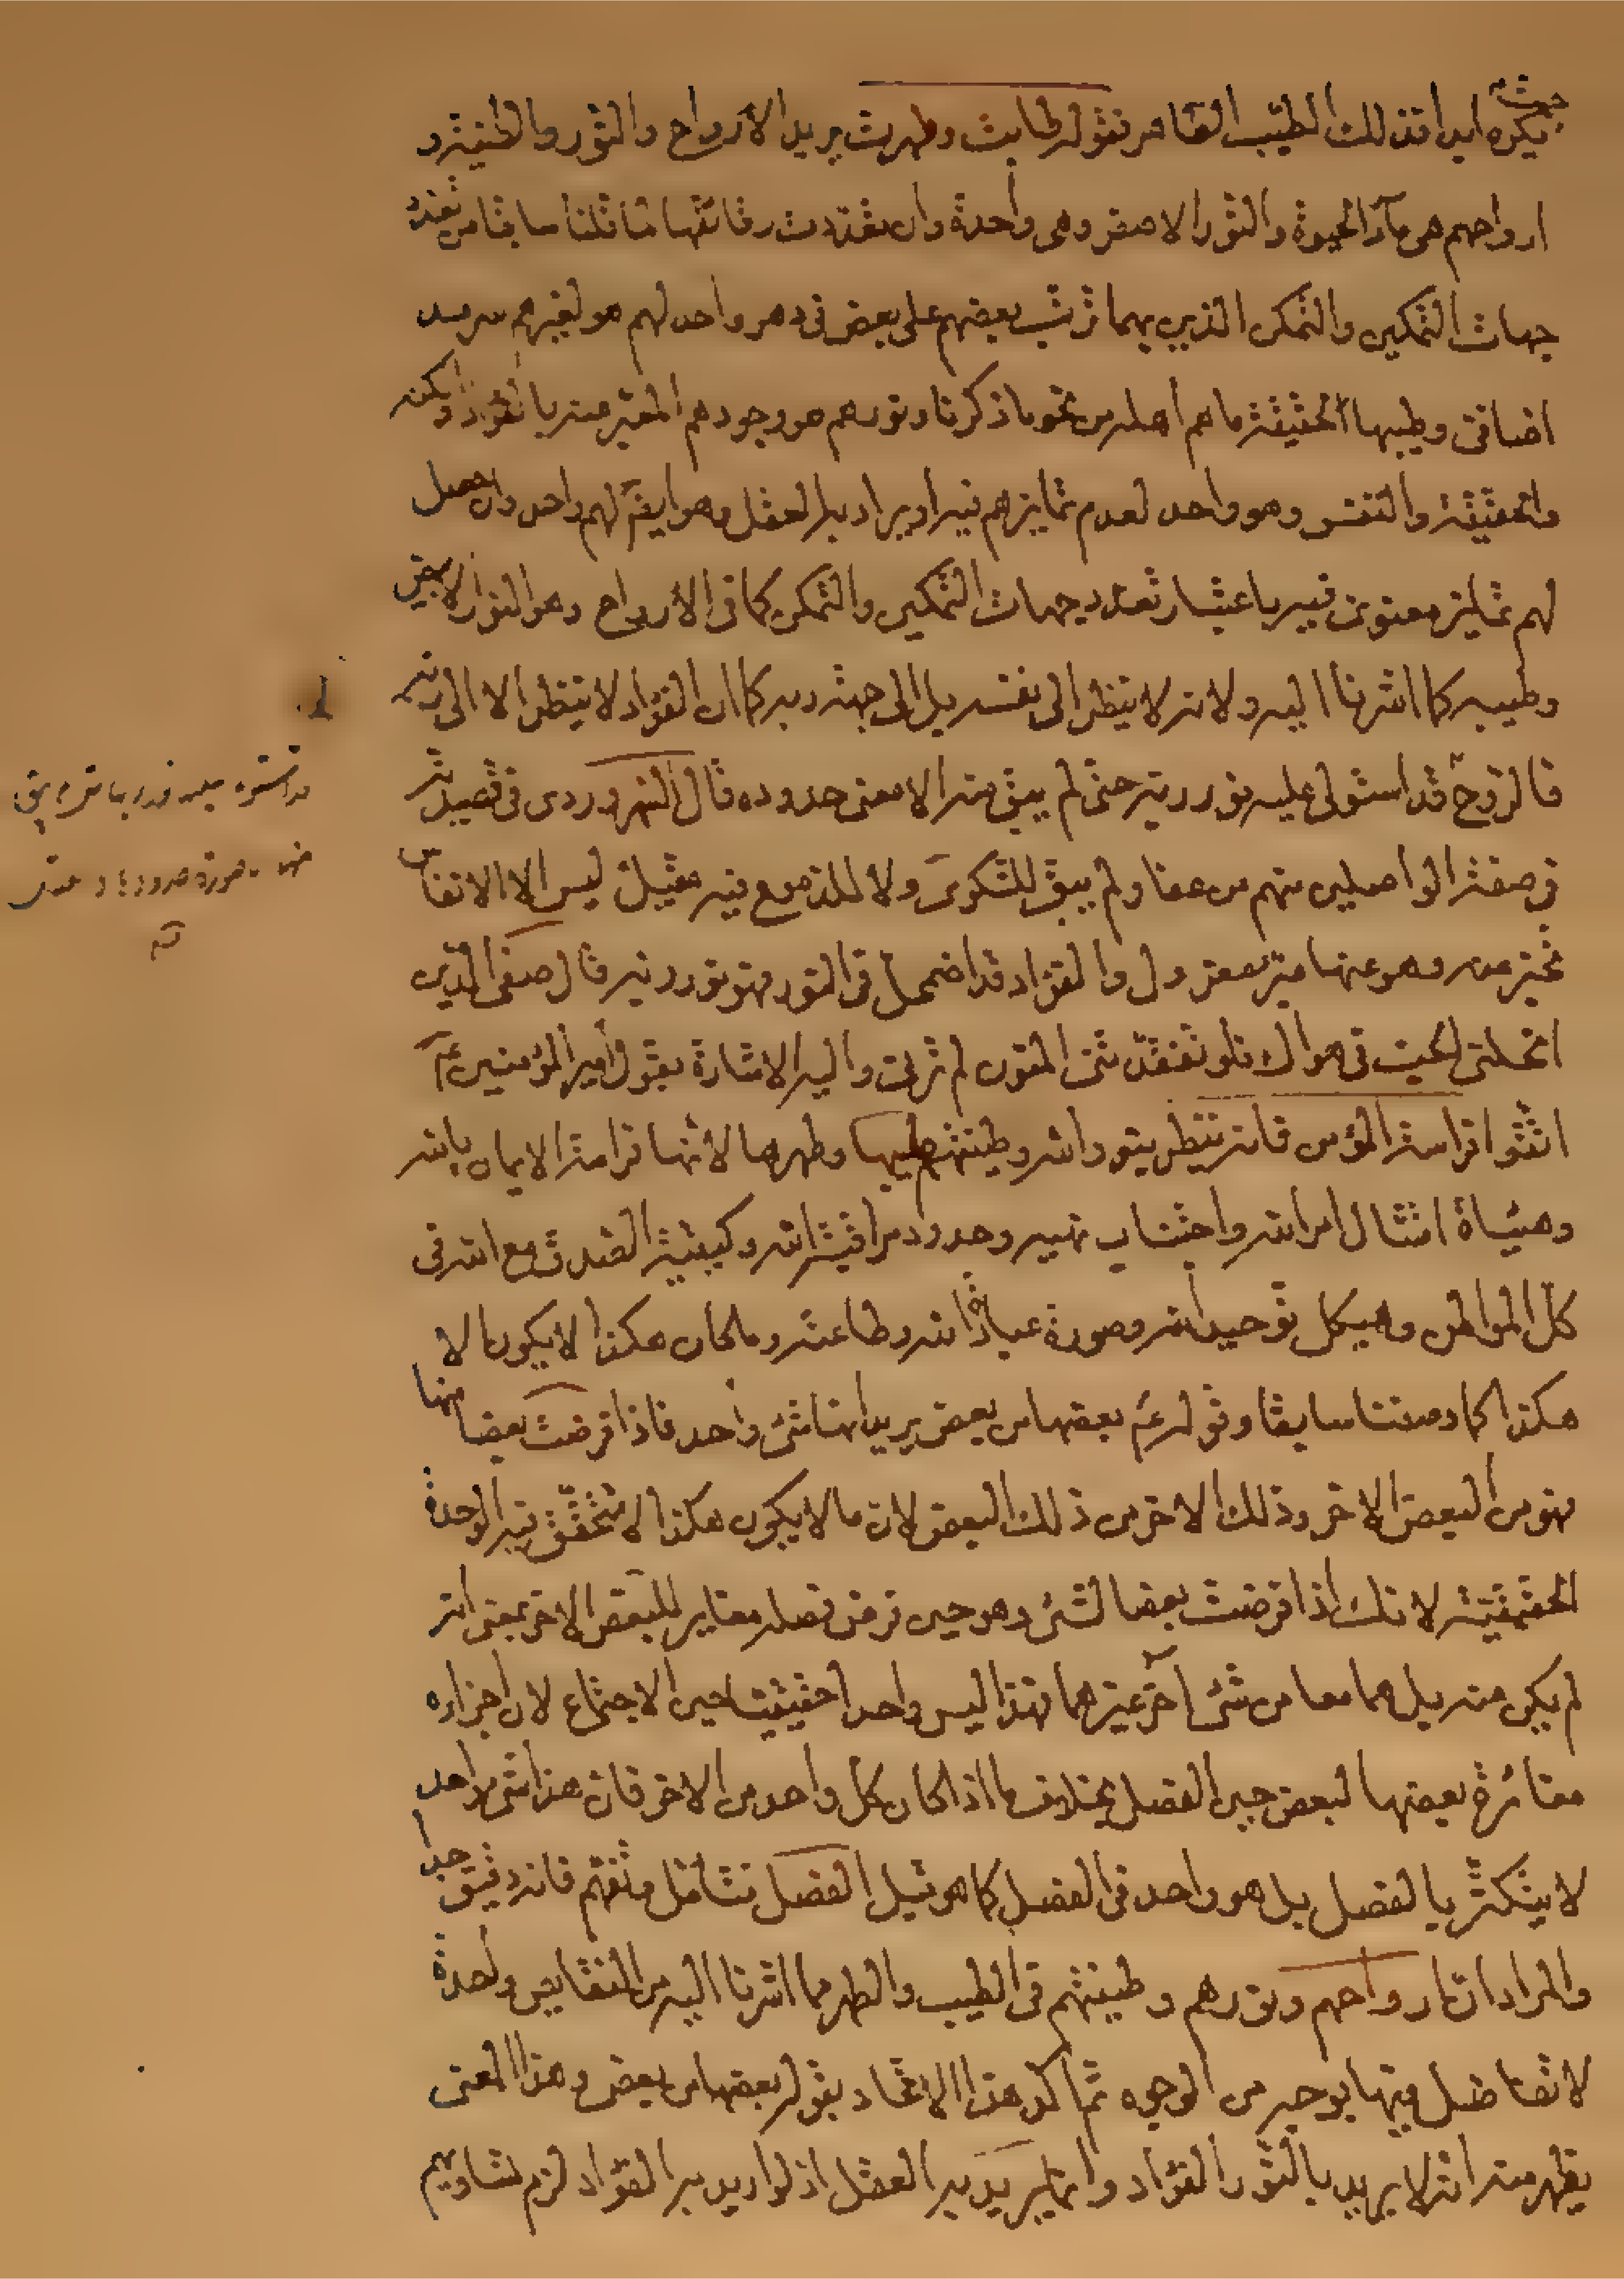 يكره ابدا فذلك الطيب الطاهر فقوله طابت وطهرت يريد الارواح والنور والطينة و
ارواحهم هي ماء الحيوة والنور الاصفر وهي واحدة وان تعددت رقائقها لما قلنا سابقا من تعدد
جهات التمكين والتمكن الذين بهما ترتب بعضهم على بعض في دهر واحد لهم هو لغيرهم سرمد
اضافي وطيبها الحقيقة ما هم اهله من نحو ما ذكرنا ونورهم هو وجودهم المعبر عنه بالفؤاد
والحقيقة والنفس وهو واحد لعدم تمايزهم فيه او يراد به العقل وهو ايضا لهم واحد وان حصل
لهم تمايز معنوي فيه باعتبار تعدد جهات التمكين والتمكن كما في الأرواح وهو النور الابيض
وطيبه كما اشرنا اليه ولانه لا ينظر الى نفسه بل الى جهة ربه كما ان الفؤاد لا ينظر الا الى ربه
فالروح قد استولى عليه نور ربه حتى لم يبق منه الا معنى حدوده قال السهروردي في قصيدته
في صفة الواصلين منهم من عفا ولم يبق للشكوى ولا للدموع فيه مقيل ليس الا الانفاس
تخبر عنه وهو عنها مبرء معزول والفؤاد قد اضمحل في النور فهو نور ربه قال صفي الدين
انحلني الحب في هواك فلو تفقدني المنون لم ترني واليه الاشارة بقول أمير المؤمنين عم
اتقوا فراسة المؤمن فانه ينظر بنور الله وطينتهم طيبها وطهرها لأنها فرامة الايمان بالله
وهيأة امتثال امر الله واجتناب نهيه وحدود مراقبة الله وكيفية الصدق مع الله في
كل المواطن وهيكل توحيد الله وصورة عبادة الله وطاعته وما كان هكذا لا يكون الا
هكذا كما وصفنا سابقا وقوله عم بعضها من بعض يريد انها شئ واحد فاذا فرضت بعضا منها
فهو من البعض الاخر وذلك الاخر من ذلك البعض لان ما لا يكون هكذا لا تتحقق فيه الوحدة
الحقيقية لانك اذا فرضت بعضا لشئ وهو حين فرض فصله مغاير للبعض الاخر بمعنى انه
لم يكن منه بل هما معا من شئ اخر غيرهما فهذا ليس واحدا حقيقيا حين الاجتماع لان اجزاءه
مغائرة بعضها لبعض حين الفصل بخلاف ما اذا كان كل واحد من الاخر فان هذا شئ واحد
لا يتكثر بالفصل بل هو واحد في الفصل كما هو قبل الفصل فتأمل وتفهم فانه دقيق جدا
والمراد ان ارواحهم ونورهم وطينتهم في الطيب والطهر مما اشرنا اليه من النقايص واحدة
لا تفاضل فيها بوجه من الوجوه ثم اكد هذا الاتحاد بقوله بعضها من بعض وهذا المعنى
يظهر منه انه لا يريد بالنور الفؤاد وانما يريد به العقل اذ لو اريد به الفؤاد لزم تساويهم